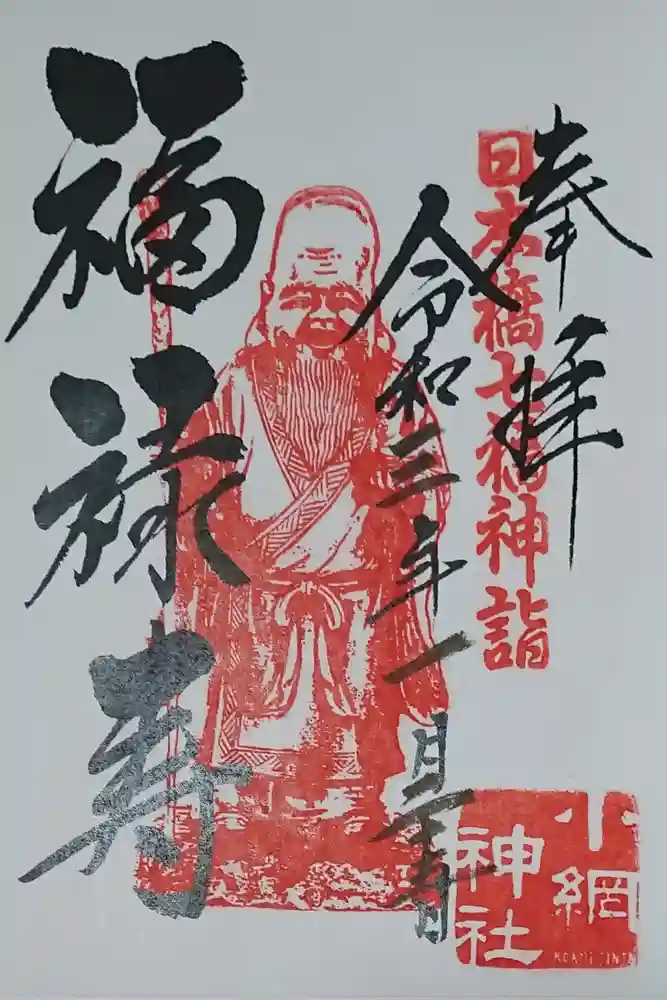 奉拝
日本橋七福神詣
令和三年一月二十五日
福禄寿
小網
神社